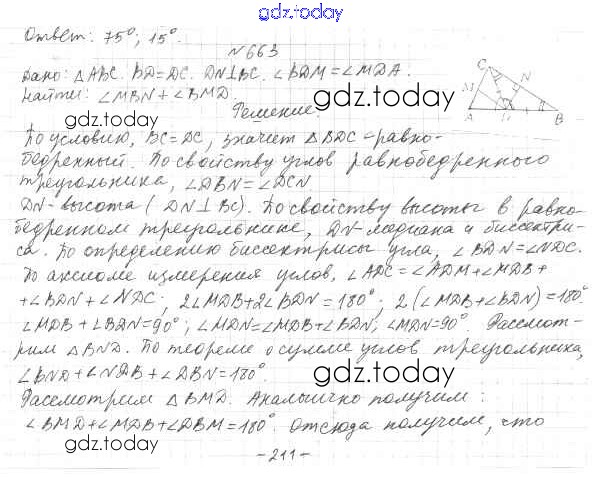 gdz.today
Ответ: 75°; 15°.
№663
Дано: △ABC. BD=DC. DN⊥BC. ∠BDM=∠MDA.
Найти: ∠MBN+∠BMD.
gdz.today
Решение.
C
M
N
A
B
По условию, BC=DC, значит △BDC-равно-
бедренный. По свойству углов равнобедренного
треугольника, ∠DBN=∠DCN
gdz.today
DN-высота (DN⊥BC). По свойству высоты в равно-
бедренном треугольнике, DN-медиана и биссектри-
са. По определению биссектрисы угла, ∠BDN=∠NDC.
По аксиоме измерения углов, ∠ADC=∠ADM+∠MDB+
+∠BDN+∠NDC; 2∠MDB+2∠BDN=180°; 2(∠MDB+∠BDN)=180°
∠MDB+∠BDN=90°; ∠MDN=∠MDB+∠BDN, ∠MDN=90°. Рассмот-
рим △BND. По теореме о сумме углов треугольника,
∠BND+∠NDB+∠DBN=180°.
gdz.today
Рассмотрим △BMD. Аналогично получим:
∠BMD+∠MDB+∠DBM=180°. Отсюда получим, что
gdz.today
-211-